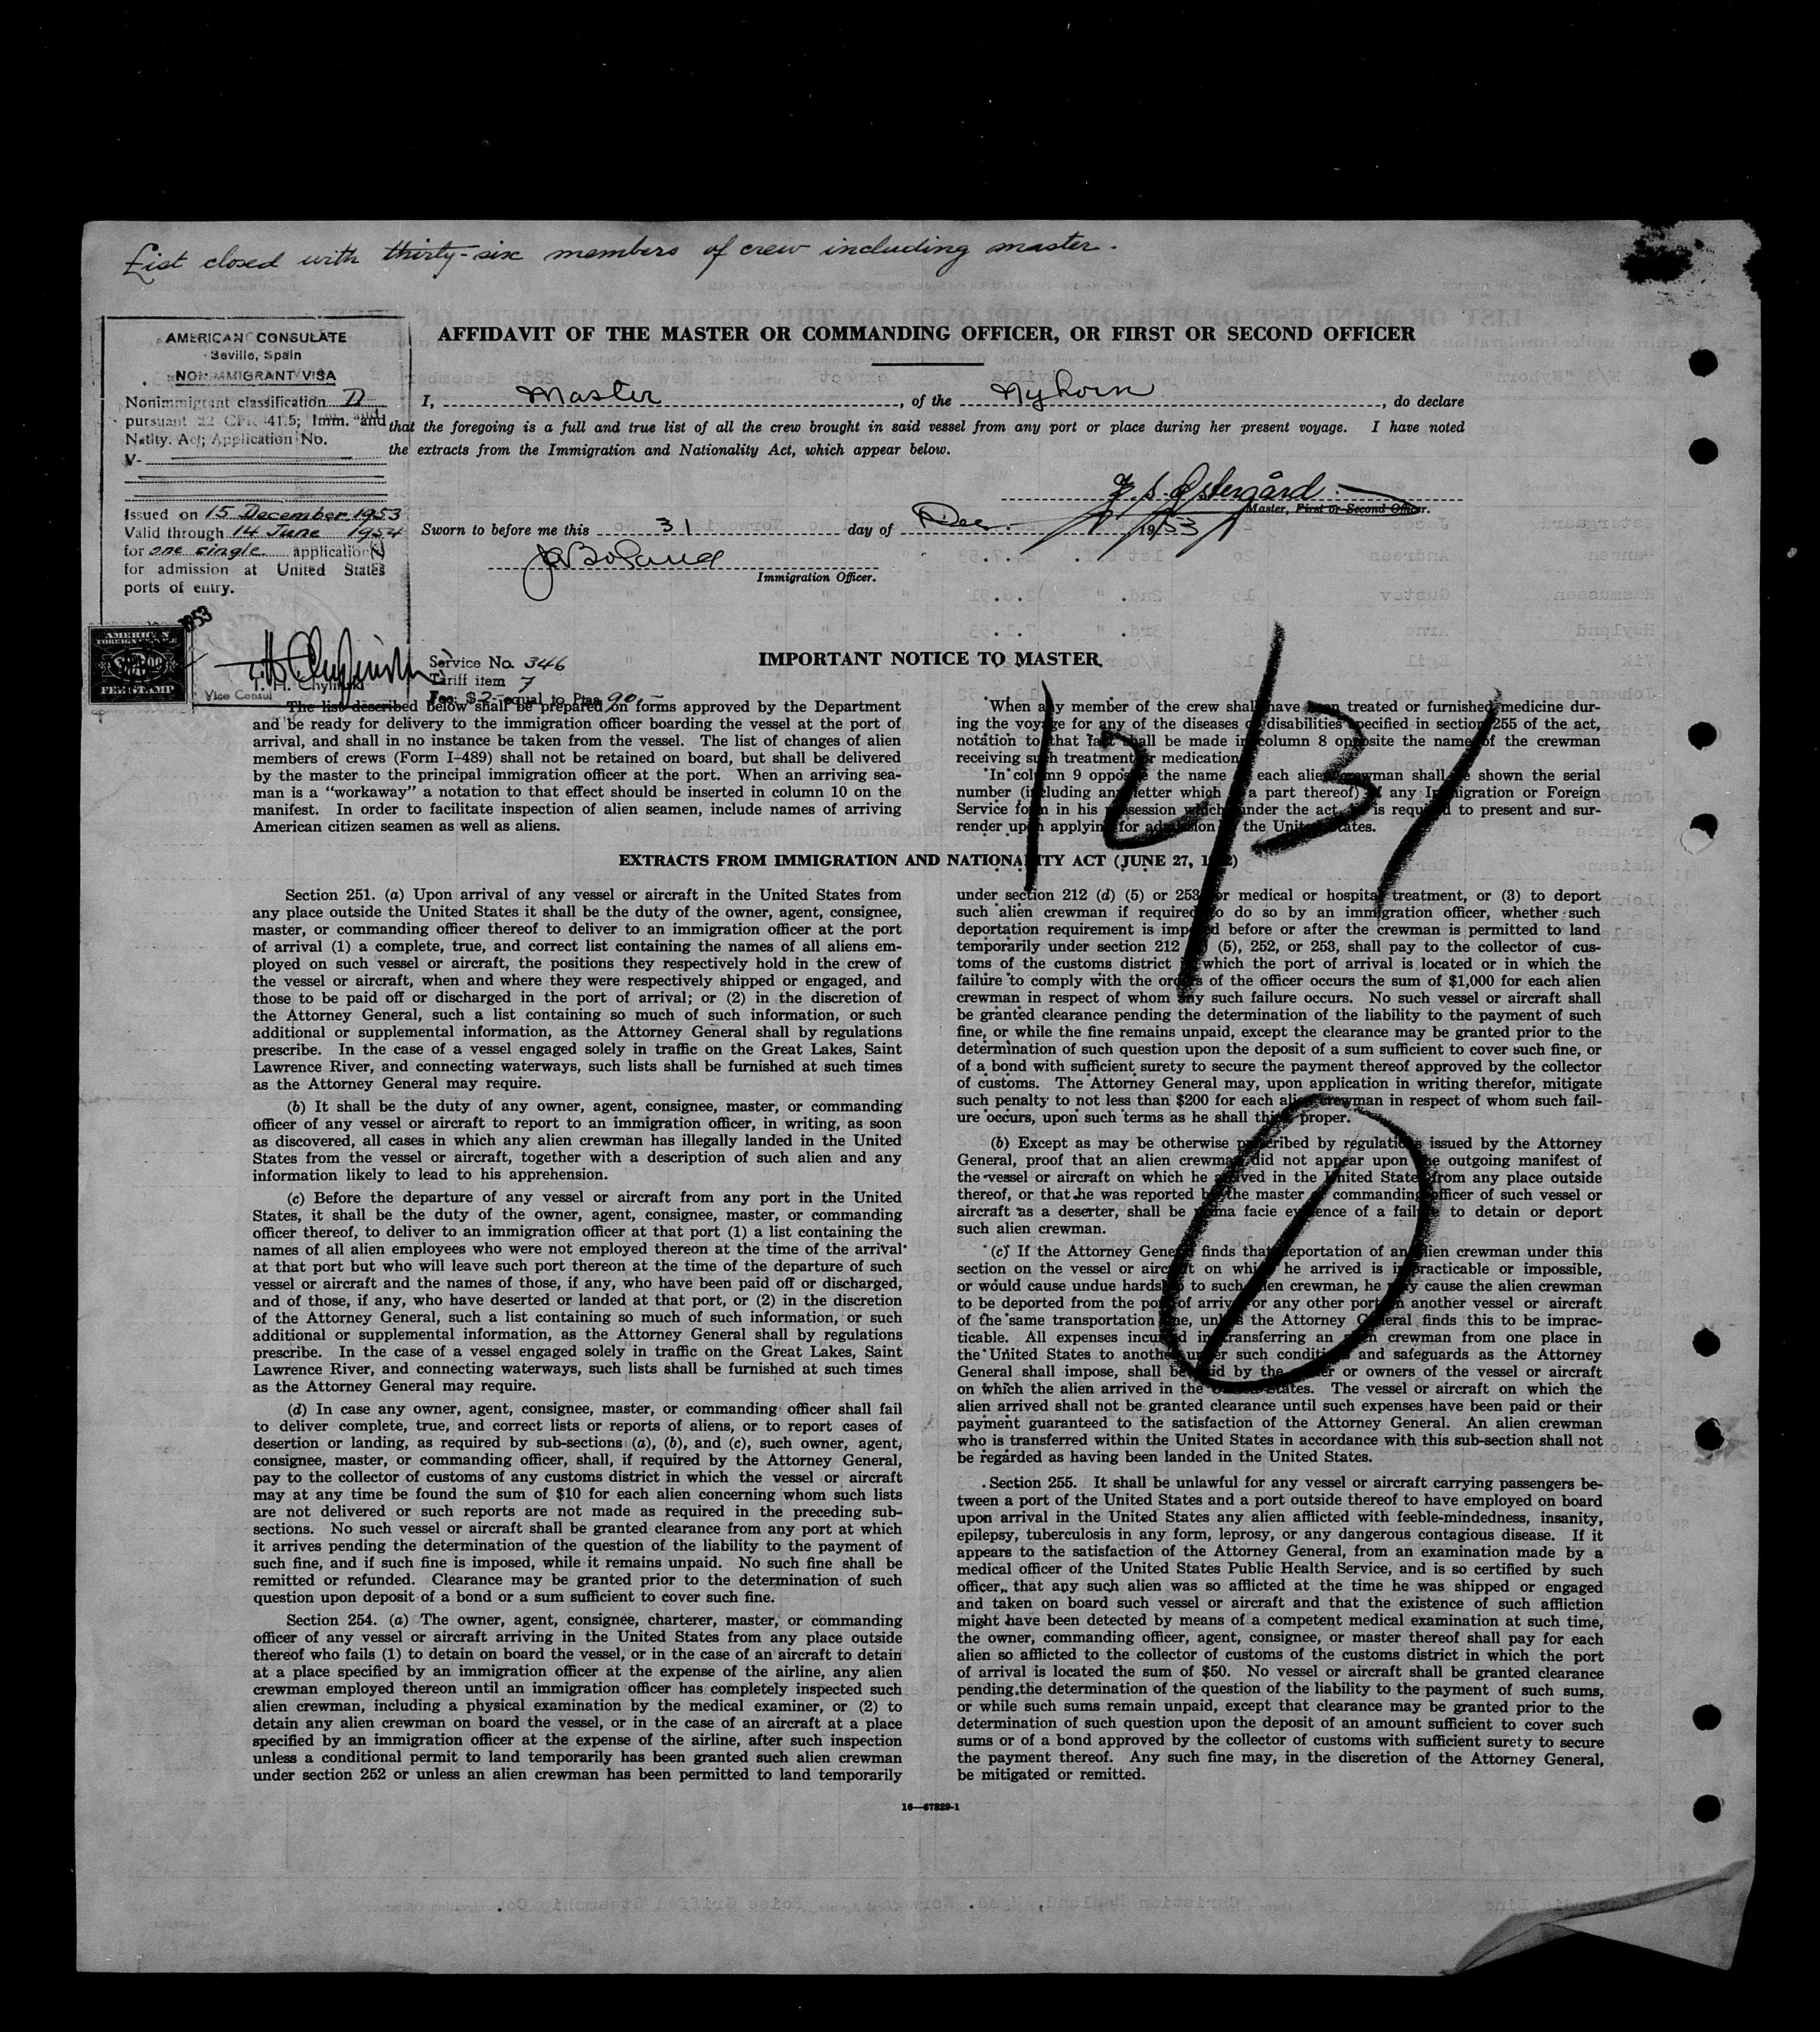 List closed with thirty-six members of crew including master.
AMERICAN CONSULATE
Seville, Spain
NONIMMIGRANT VISA
Nonimmigrant classification D
pursuant 22 CFR 41.5; Imm. and
Natlty. Act; Application No.
V-
Issued on 15 December 1953
Valid through 14 June 1954
for one single application(s)
for admission at United States
ports of entry.
1953
AMERICAN
FOREIGN SERVICE
FEE STAMP
T. H. Chylinski
Vice Consul
Service No. 346
Tariff item 7
Fee: $2- equal to Ptas 90.-
AFFIDAVIT OF THE MASTER OR COMMANDING OFFICER, OR FIRST OR SECOND OFFICER
I, Master, of the Nyhorn, do declare
that the foregoing is a full and true list of all the crew brought in said vessel from any port or place during her present voyage. I have noted
the extracts from the Immigration and Nationality Act, which appear below.
Østergård
Master, First or Second Officer.
Sworn to before me this 31 day of Dec. 1953
Boland
Immigration Officer.
IMPORTANT NOTICE TO MASTER
The list described below shall be prepared on forms approved by the Department
and be ready for delivery to the immigration officer boarding the vessel at the port of
arrival, and shall in no instance be taken from the vessel. The list of changes of alien
members of crews (Form I-489) shall not be retained on board, but shall be delivered
by the master to the principal immigration officer at the port. When an arriving sea-
man is a "workaway" a notation to that effect should be inserted in column 10 on the
manifest. In order to facilitate inspection of alien seamen, include names of arriving
American citizen seamen as well as aliens.
When any member of the crew shall have been treated or furnished medicine dur-
ing the voyage for any of the diseases or disabilities specified in section 255 of the act,
notation to that fact shall be made in column 8 opposite the name of the crewman
receiving such treatment or medication.
In column 9 opposite the name of each alien crewman shall be shown the serial
number (including any letter which is a part thereof) of any Immigration or Foreign
Service form in his possession which under the act he is required to present and sur-
render upon applying for admission to the United States.
12/31
EXTRACTS FROM IMMIGRATION AND NATIONALITY ACT (JUNE 27, 1952)
Section 251. (a) Upon arrival of any vessel or aircraft in the United States from
any place outside the United States it shall be the duty of the owner, agent, consignee,
master, or commanding officer thereof to deliver to an immigration officer at the port
of arrival (1) a complete, true, and correct list containing the names of all aliens em-
ployed on such vessel or aircraft, the positions they respectively hold in the crew of
the vessel or aircraft, when and where they were respectively shipped or engaged, and
those to be paid off or discharged in the port of arrival; or (2) in the discretion of
the Attorney General, such a list containing so much of such information, or such
additional or supplemental information, as the Attorney General shall by regulations
prescribe. In the case of a vessel engaged solely in traffic on the Great Lakes, Saint
Lawrence River, and connecting waterways, such lists shall be furnished at such times
as the Attorney General may require.
(b) It shall be the duty of any owner, agent, consignee, master, or commanding
officer of any vessel or aircraft to report to an immigration officer, in writing, as soon
as discovered, all cases in which any alien crewman has illegally landed in the United
States from the vessel or aircraft, together with a description of such alien and any
information likely to lead to his apprehension.
(c) Before the departure of any vessel or aircraft from any port in the United
States, it shall be the duty of the owner, agent, consignee, master, or commanding
officer thereof, to deliver to an immigration officer at that port (1) a list containing the
names of all alien employees who were not employed thereon at the time of the arrival
at that port but who will leave such port thereon at the time of the departure of such
vessel or aircraft and the names of those, if any, who have been paid off or discharged,
and of those, if any, who have deserted or landed at that port, or (2) in the discretion
of the Attorney General, such a list containing so much of such information, or such
additional or supplemental information, as the Attorney General shall by regulations
prescribe. In the case of a vessel engaged solely in traffic on the Great Lakes, Saint
Lawrence River, and connecting waterways, such lists shall be furnished at such times
as the Attorney General may require.
(d) In case any owner, agent, consignee, master, or commanding officer shall fail
to deliver complete, true, and correct lists or reports of aliens, or to report cases of
desertion or landing, as required by sub-sections (a), (b), and (c), such owner, agent,
consignee, master, or commanding officer, shall, if required by the Attorney General,
pay to the collector of customs of any customs district in which the vessel or aircraft
may at any time be found the sum of $10 for each alien concerning whom such lists
are not delivered or such reports are not made as required in the preceding sub-
sections. No such vessel or aircraft shall be granted clearance from any port at which
it arrives pending the determination of the question of the liability to the payment of
such fine, and if such fine is imposed, while it remains unpaid. No such fine shall be
remitted or refunded. Clearance may be granted prior to the determination of such
question upon deposit of a bond or a sum sufficient to cover such fine.
Section 254. (a) The owner, agent, consignee, charterer, master, or commanding
officer of any vessel or aircraft arriving in the United States from any place outside
thereof who fails (1) to detain on board the vessel, or in the case of an aircraft to detain
at a place specified by an immigration officer at the expense of the airline, any alien
crewman employed thereon until an immigration officer has completely inspected such
alien crewman, including a physical examination by the medical examiner, or (2) to
detain any alien crewman on board the vessel, or in the case of an aircraft at a place
specified by an immigration officer at the expense of the airline, after such inspection
unless a conditional permit to land temporarily has been granted such alien crewman
under section 252 or unless an alien crewman has been permitted to land temporarily
under section 212 (d) (5) or 253 for medical or hospital treatment, or (3) to deport
such alien crewman if required to do so by an immigration officer, whether such
deportation requirement is imposed before or after the crewman is permitted to land
temporarily under section 212 (d) (5), 252, or 253, shall pay to the collector of cus-
toms of the customs district in which the port of arrival is located or in which the
failure to comply with the orders of the officer occurs the sum of $1,000 for each alien
crewman in respect of whom any such failure occurs. No such vessel or aircraft shall
be granted clearance pending the determination of the liability to the payment of such
fine, or while the fine remains unpaid, except the clearance may be granted prior to the
determination of such question upon the deposit of a sum sufficient to cover such fine, or
of a bond with sufficient surety to secure the payment thereof approved by the collector
of customs. The Attorney General may, upon application in writing therefor, mitigate
such penalty to not less than $200 for each alien crewman in respect of whom such fail-
ure occurs, upon such terms as he shall think proper.
(b) Except as may be otherwise prescribed by regulations issued by the Attorney
General, proof that an alien crewman did not appear upon the outgoing manifest of
the vessel or aircraft on which he arrived in the United States from any place outside
thereof, or that he was reported by the master or commanding officer of such vessel or
aircraft as a deserter, shall be prima facie evidence of a failure to detain or deport
such alien crewman.
(c) If the Attorney General finds that deportation of an alien crewman under this
section on the vessel or aircraft on which he arrived is impracticable or impossible,
or would cause undue hardship to such alien crewman, he may cause the alien crewman
to be deported from the port of arrival or any other port on another vessel or aircraft
of the same transportation line, unless the Attorney General finds this to be imprac-
ticable. All expenses incurred in transferring an alien crewman from one place in
the United States to another under such conditions and safeguards as the Attorney
General shall impose, shall be paid by the owner or owners of the vessel or aircraft
on which the alien arrived in the United States. The vessel or aircraft on which the
alien arrived shall not be granted clearance until such expenses have been paid or their
payment guaranteed to the satisfaction of the Attorney General. An alien crewman
who is transferred within the United States in accordance with this sub-section shall not
be regarded as having been landed in the United States.
Section 255. It shall be unlawful for any vessel or aircraft carrying passengers be-
tween a port of the United States and a port outside thereof to have employed on board
upon arrival in the United States any alien afflicted with feeble-mindedness, insanity,
epilepsy, tuberculosis in any form, leprosy, or any dangerous contagious disease. If it
appears to the satisfaction of the Attorney General, from an examination made by a
medical officer of the United States Public Health Service, and is so certified by such
officer, that any such alien was so afflicted at the time he was shipped or engaged
and taken on board such vessel or aircraft and that the existence of such affliction
might have been detected by means of a competent medical examination at such time,
the owner, commanding officer, agent, consignee, or master thereof shall pay for each
alien so afflicted to the collector of customs of the customs district in which the port
of arrival is located the sum of $50. No vessel or aircraft shall be granted clearance
pending the determination of the question of the liability to the payment of such sums,
or while such sums remain unpaid, except that clearance may be granted prior to the
determination of such question upon the deposit of an amount sufficient to cover such
sums or of a bond approved by the collector of customs with sufficient surety to secure
the payment thereof. Any such fine may, in the discretion of the Attorney General,
be mitigated or remitted.
16—67329-1